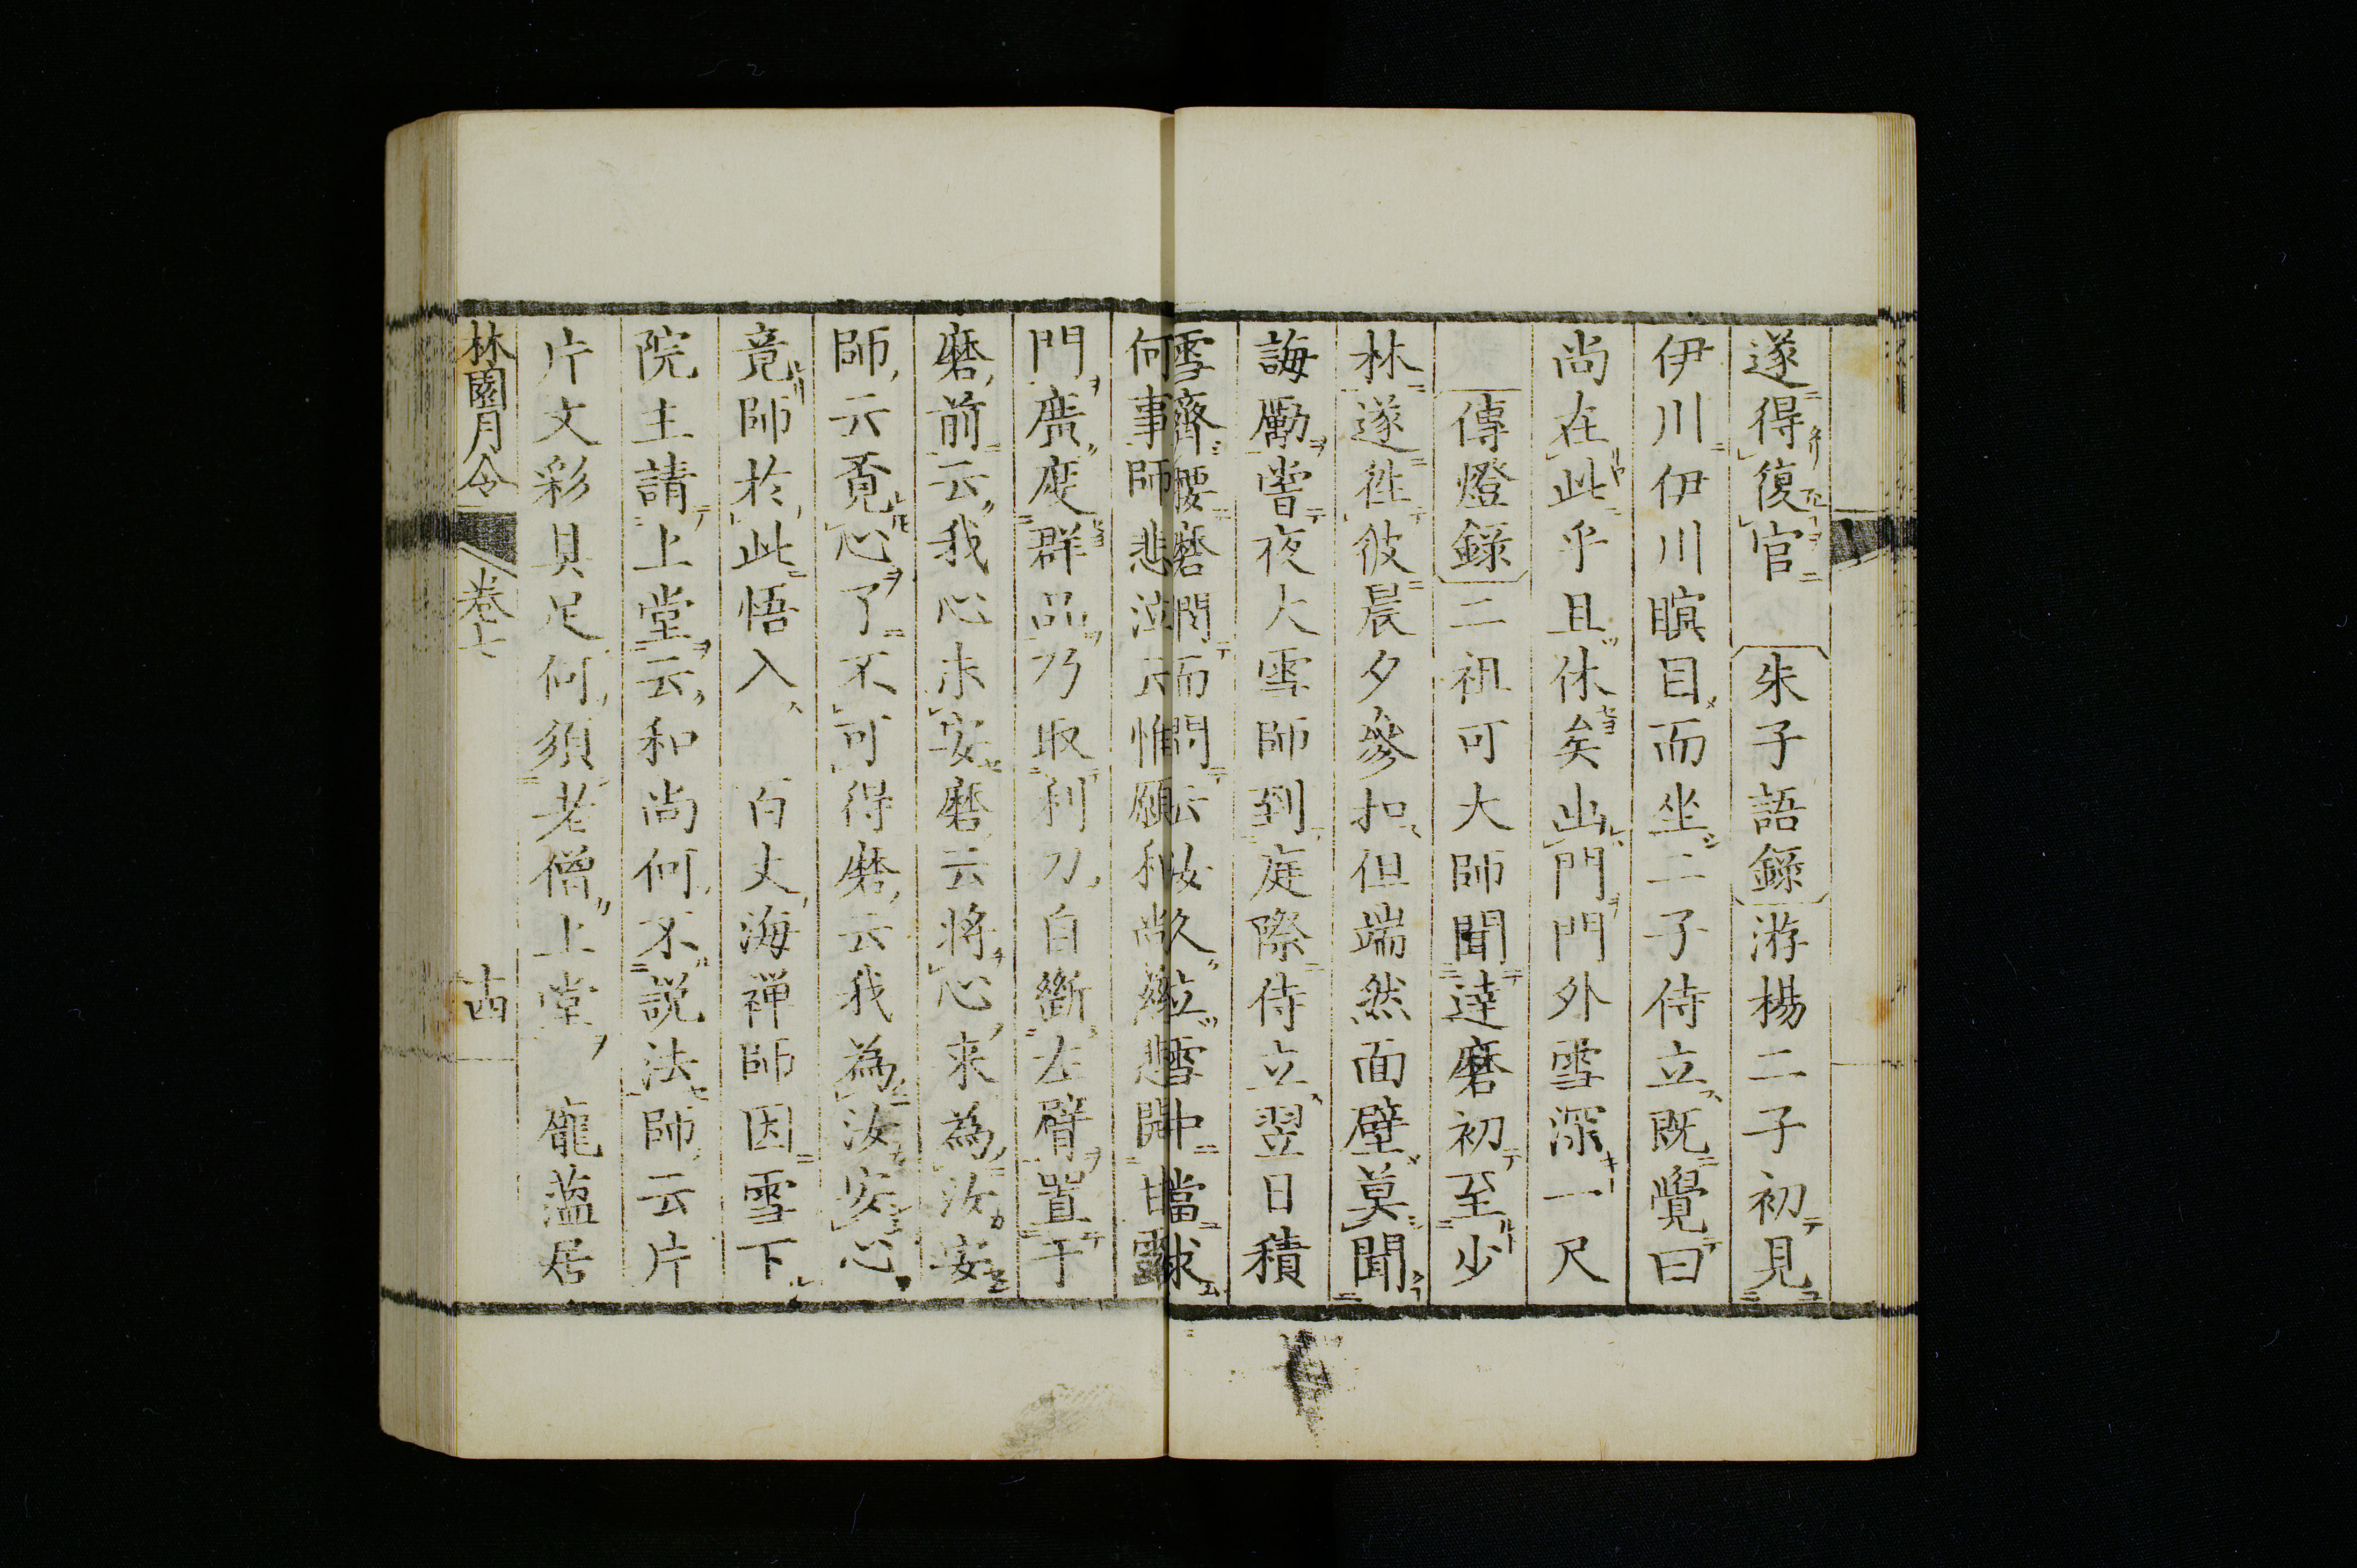 遂得復官　朱子語錄游楊二子初見
伊川伊川瞑目而坐二子侍立既覺曰
尚在此乎且休矣出門門外雪深一尺
傳燈錄二祖可大師聞達磨初至少
林遂徃彼晨夕參扣但端然面壁莫聞
誨勵甞夜大雪師到庭際侍立翌日積
雪齊腰磨問而憫云汝久立雪中當求
何事師悲泣惟願和尚慈悲開甘露
門廣度群品乃取利刀自斷左臂置于
磨前云我心未安磨云將心来為汝安
師云覓心了不可得磨云我為汝安心
竟師於此悟入　百丈海禅師因雪下
院主請上堂云和尚何不説法師云片
片文彩具足何須老僧上堂　龐蘊居
林園月令　卷七　十四